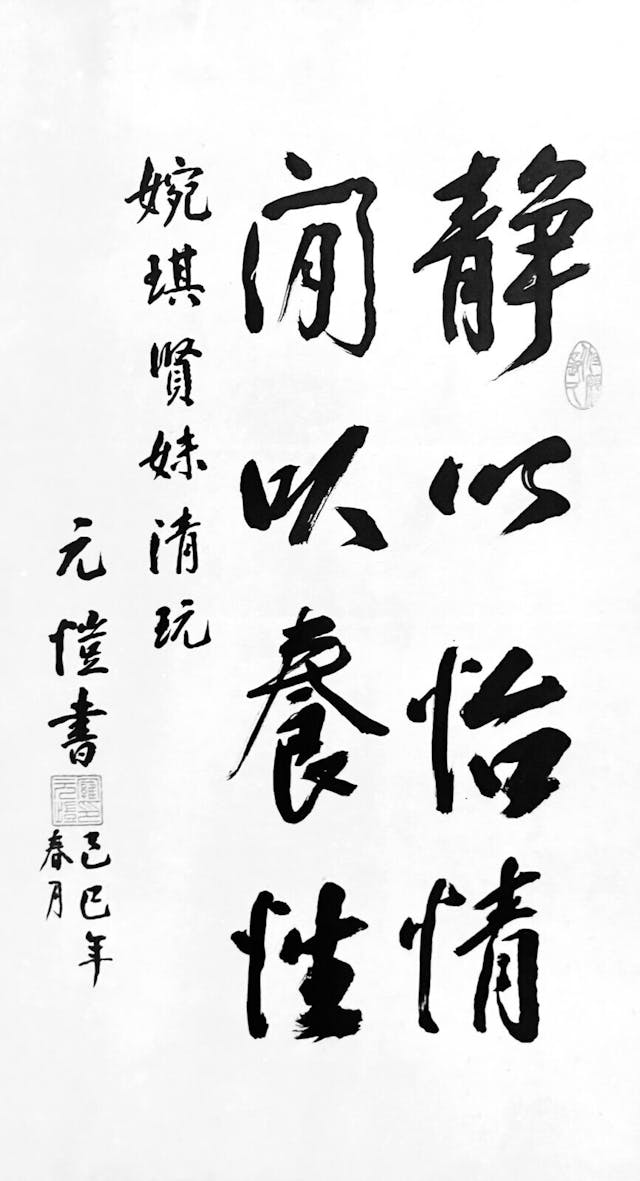 静以怡情
閒以養性
婉琪賢妹清玩
元愷書
己巳年
春月